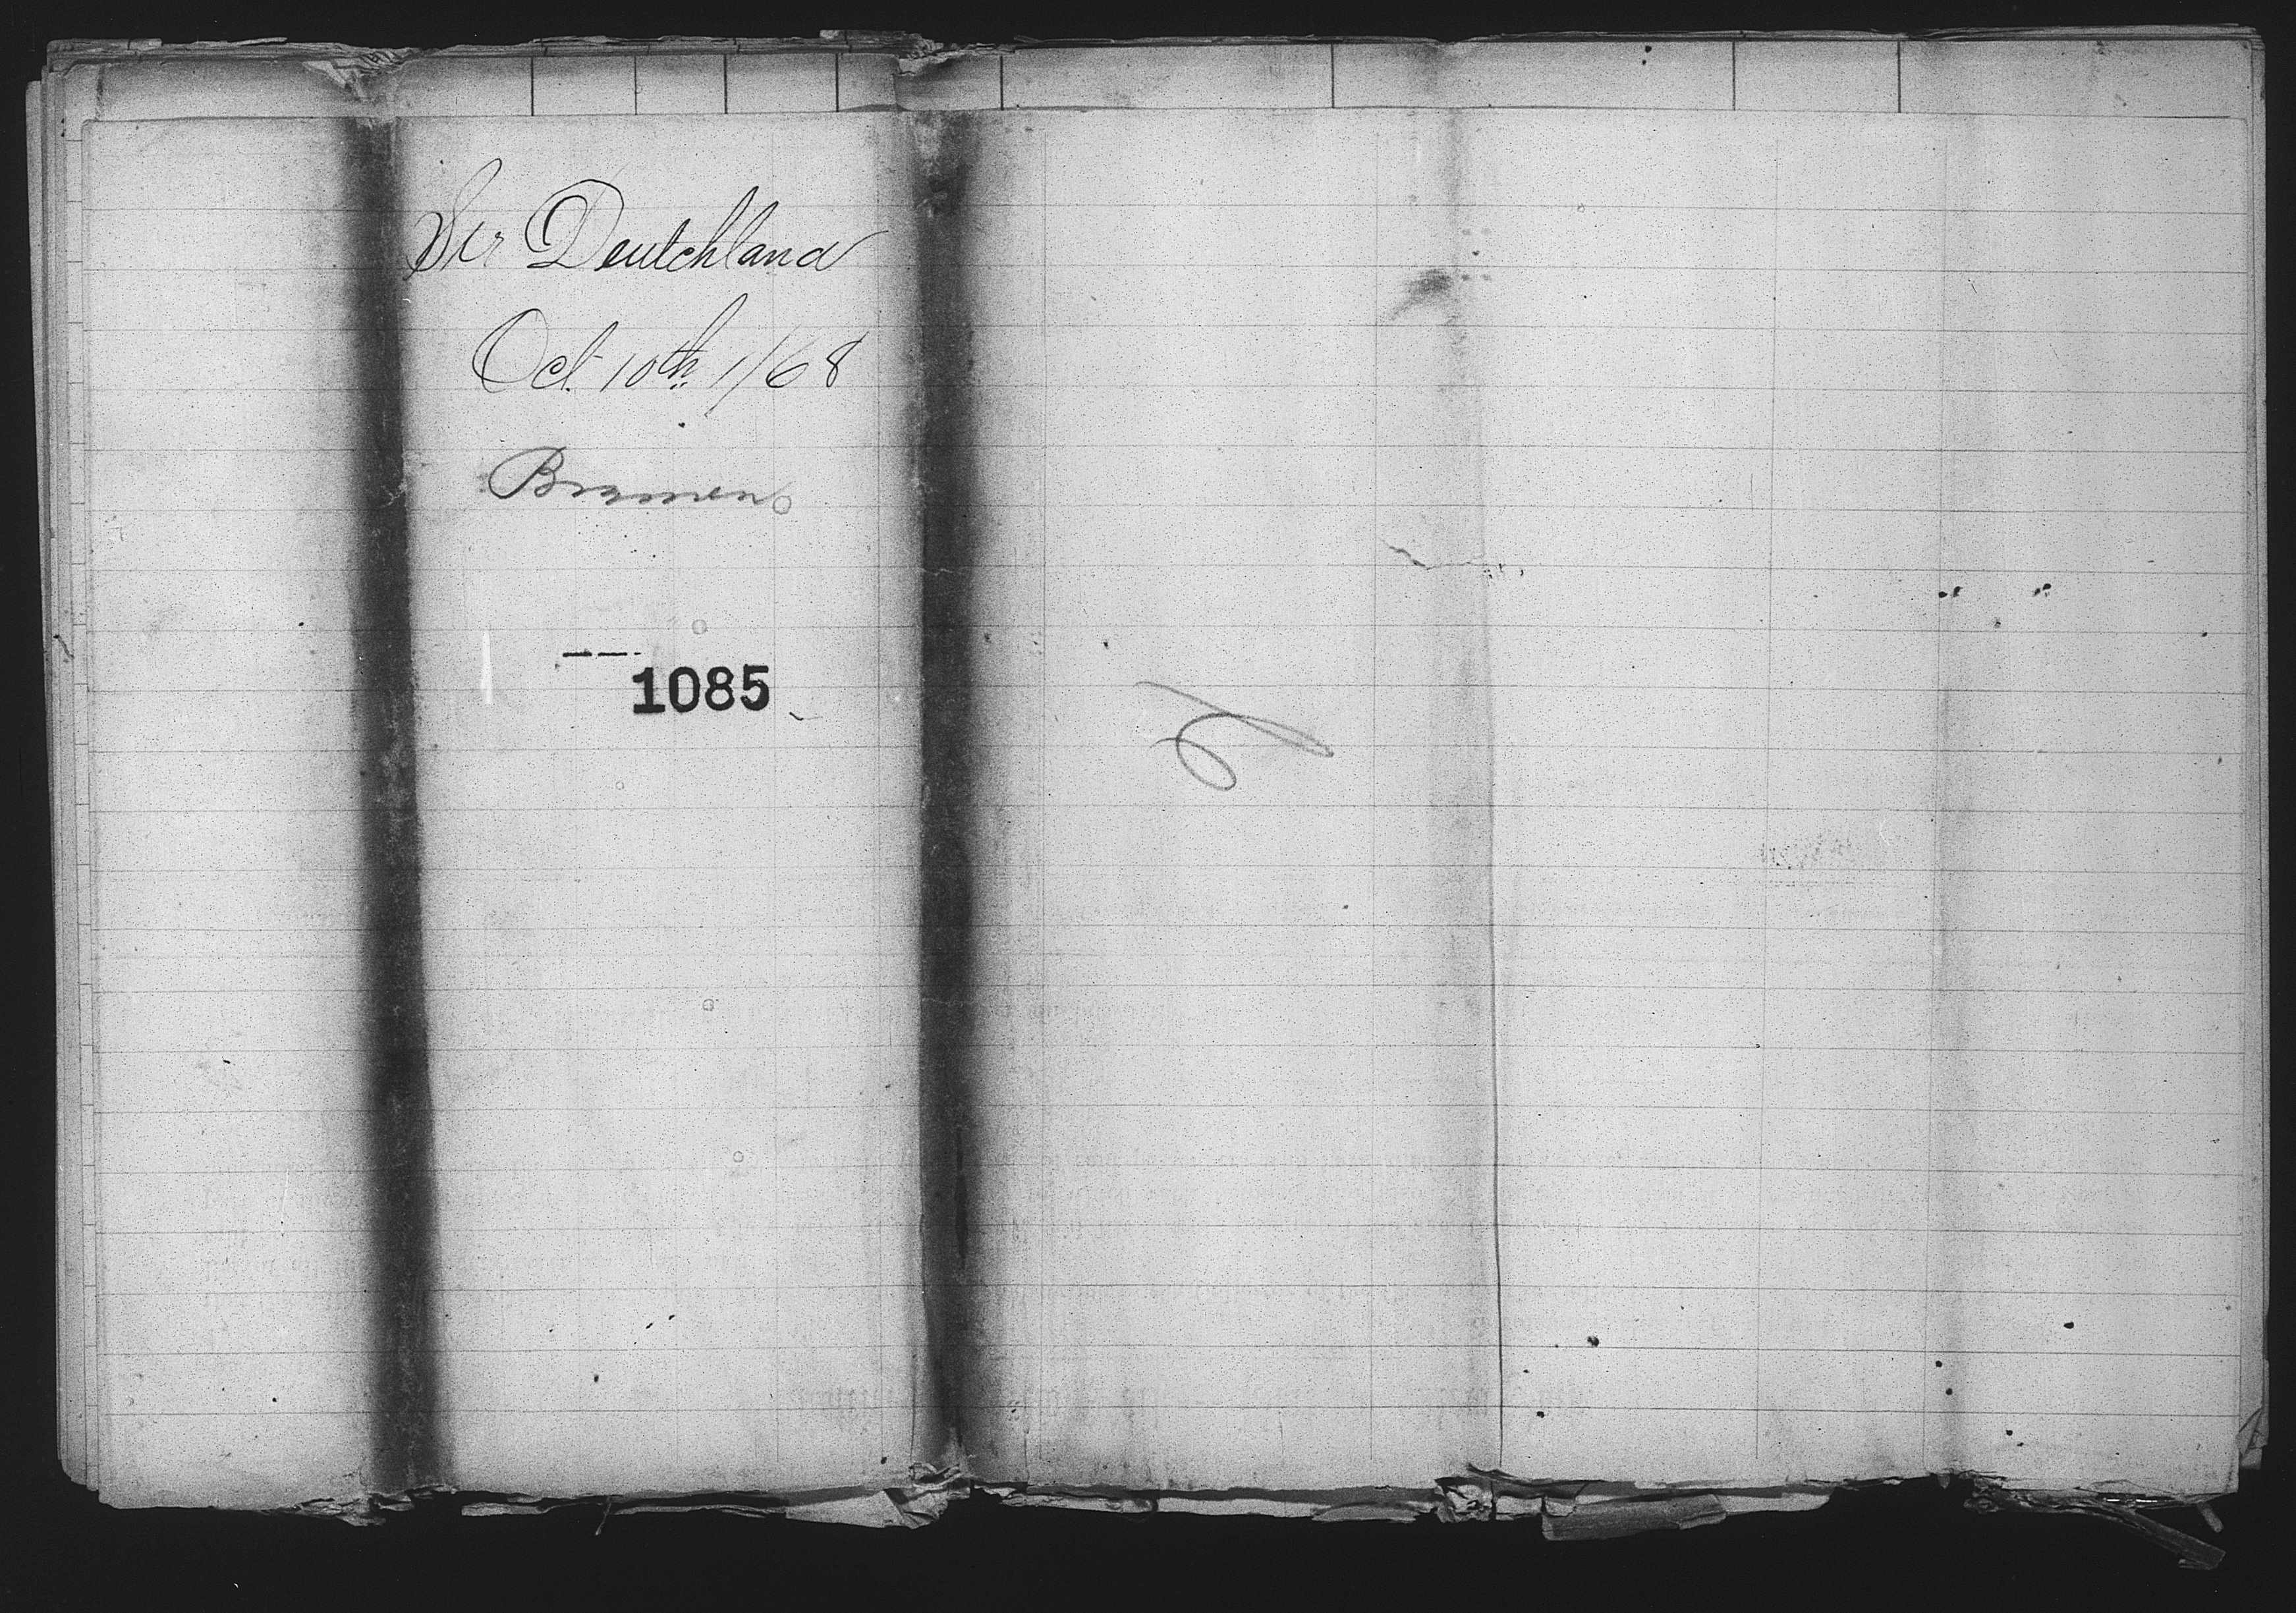 Str Deutchland
Oct 10th 1868
Bremen
1085